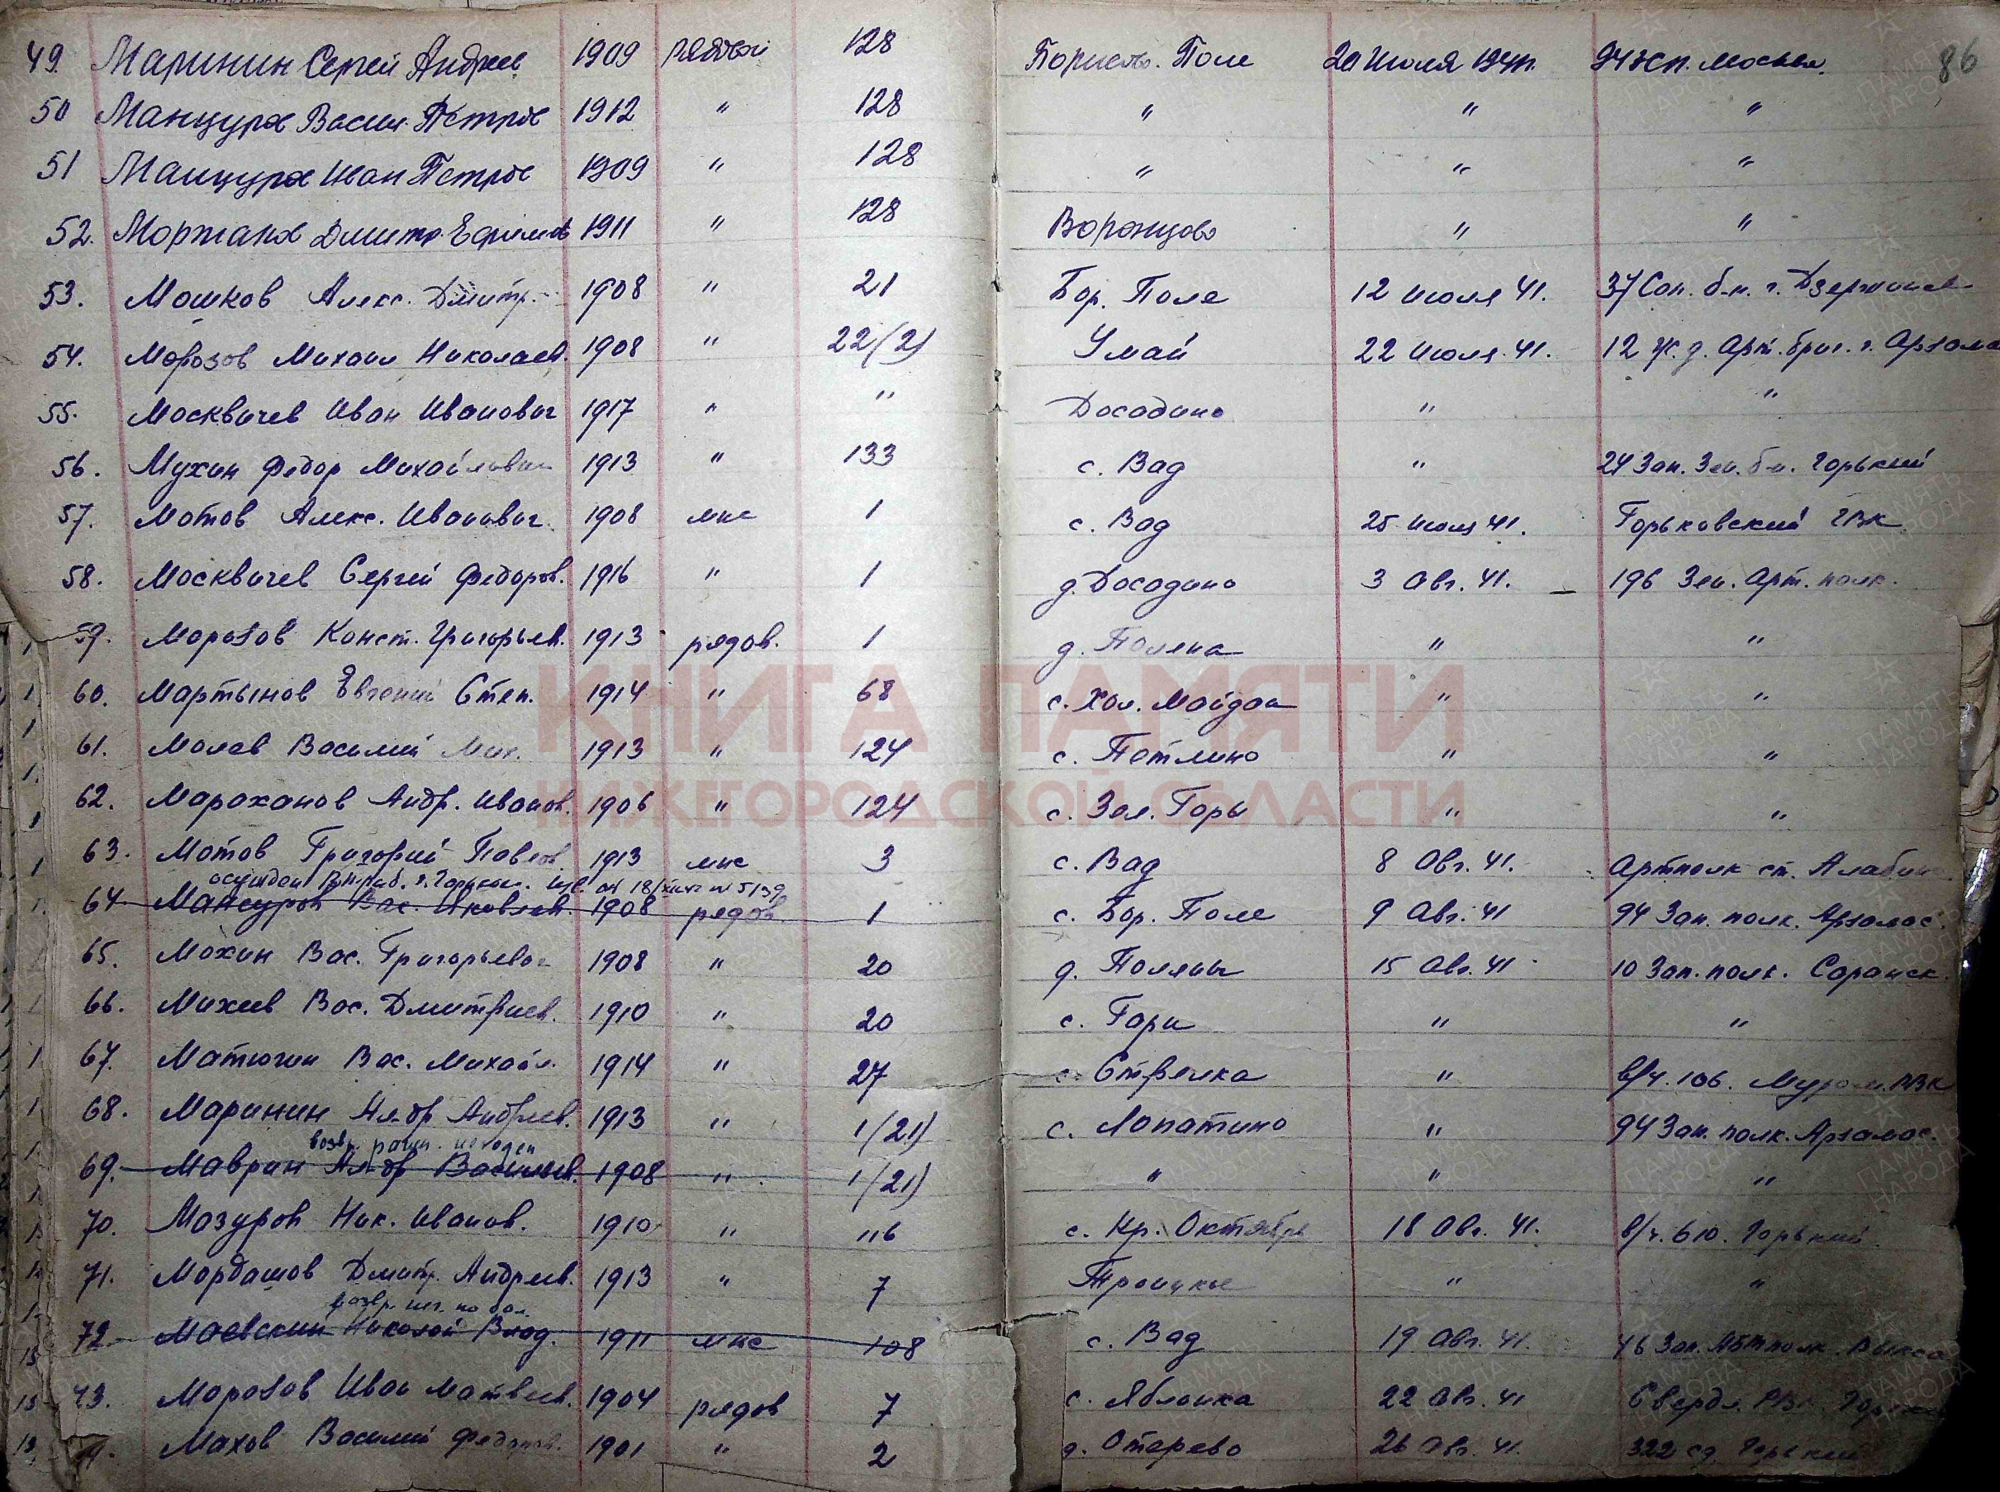 86
49. Маринин Сергей Андреев 1909 рядовой 128 Борисово. Поле 20 Июля 1941г. 94 жсп. Москва.
50 Манцуров Васил. Петров 1912 " 128 " " "
51 Манцуров Иван Петров 1909 " 128 " " "
52. Моржаков Дмитр. Ефимов 1911 " 128 Воронцово " "
53. Мошков Алекс. Дмитр. 1908 " 21 Бор. Поле 12 июля 41. 37 Сап. б-н. г. Дзержинск
54. Морозов Михаил Николаев. 1908 " 22/2) Умай 22 Июля. 41. 12 ж.д. Арт. бриг. г. Арзамас
55. Москвичев Иван Иванович 1917 " " Досадино " "
56. Мухин Федор Михайлович 1913 " 133 с. Вад " 24 Зап. Зен. б-н. Горький
57. Мотов Алекс. Иванович 1908 мнс 1 с. Вад 25 июля 41. Горьковский ГВК
58. Москвичев Сергей Федоров. 1916 " 1 д. Досадино 3 Авг. 41. 196 Зен. Арт. полк.
59. Морозов Конст. Григорьев. 1913 рядов. 1 д. Поляна " "
60. Мартынов Евгений Степ. 1914 " 68 с. Хол. Майдан " "
61. Малев Василий Мих. 1913 " 124 с. Петлино " "
62. Мараханов Андр. Иванов. 1906 " 124 с. Зел. Горы " "
63. Мотов Григорий Павлов. 1913 мнс 3 с. Вад 8 Авг. 41. Артполк ст. Алабин
осужден г. Горьк. от 18/ № 5139
64 Мансуров Вас. Яковлев. 1908 рядов. 1 с. Бор. Поле 9 Авг. 41 94 Зап. полк. Арзамас.
65. Мохин Вас. Григорьевич 1908 " 20 д. Поляны 15 Авг. 41 10 Зап. полк. Саранск.
66. Михеев Вас. Дмитриев. 1910 " 20 с. Гари " "
67. Матюгин Вас. Михайл. 1914 " 27 с. Стрелка " в/ч. 106. Муром. РВК
68. Маринин Ал-др Андреев. 1913 " 1/21) с. Лопатино " 94 Зап. полк. Арзамас.
возвр.
69. Маврин Ал-др Васильев. 1908 " 1/21) " " "
70. Мазуров Ник. Иванов. 1910 " 116 с. Кр. Октябрь 18 Авг. 41. в/ч. 610. Горький.
71. Мордашов Дмитр. Андреев. 1913 " 7 Троицкое " "
возвр. по бол.
72. Маевский Николай Влад. 1911 мнс 108 с. Вад 19 Авг. 41. 46 Зап. полк. Выкса
73. Морозов Иван Матвеев. 1904 рядов 7 с. Яблонка 22 Авг. 41 Свердл. РВК. Горький
Махов Василий Федоров. 1901 " 2 д. Отарево 26 Авг. 41. 322 сд. Горький
КНИГА ПАМЯТИ
НИЖЕГОРОДСКОЙ ОБЛАСТИ
ПАМЯТЬ НАРОДА